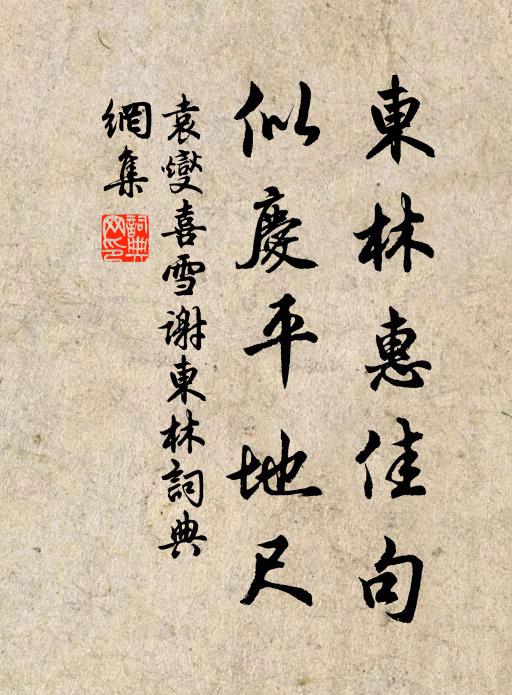 東林惠佳句
似慶平地尺
袁燮喜雪謝東林詞典
網集
詞典
網印